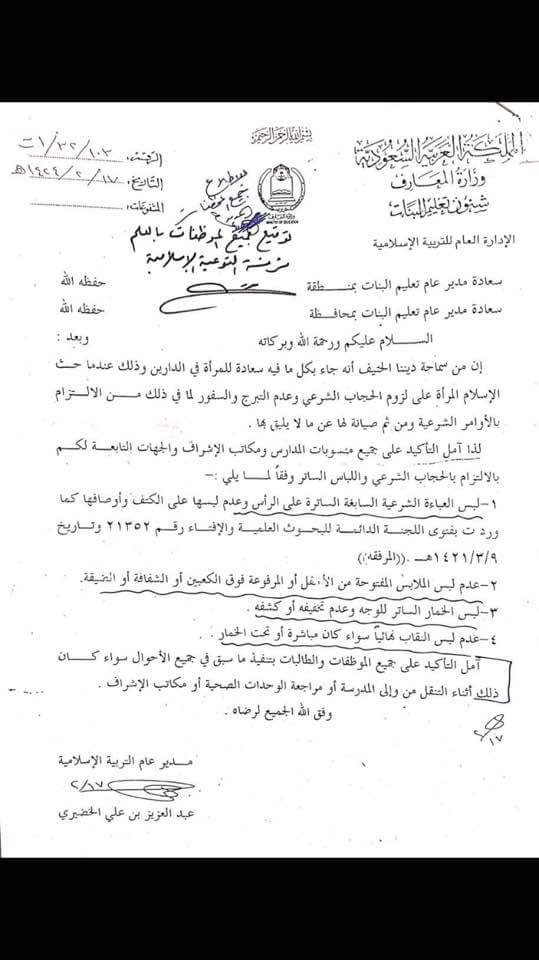 بسم الله الرحمن الرحيم
المملكة العربية السعودية
وزارة المعارف
شئون تعليم البنات
الإدارة العام للتربية الإسلامية
الرقم: ٣٢/١٠٣/١ت
التاريخ: ١٤٢٤/٢/١٧هـ
المشفوعات:
للاطلاع
MINISTRY OF EDUCATION
توقيع جميع الموظفات بالعلم
مشرفة التوعية الإسلامية
سعادة مدير عام تعليم البنات بمنطقة حفظه الله
سعادة مدير عام تعليم البنات بمحافظة حفظه الله
السلام عليكم ورحمة الله وبركاته وبعد :
إن من سماحة ديننا الحنيف أنه جاء بكل ما فيه سعادة للمرأة في الدارين وذلك عندما حث
الإسلام المرأة على لزوم الحجاب الشرعي وعدم التبرج والسفور لما في ذلك من الالتزام
بالأوامر الشرعية ومن ثم صيانة لها عن ما لا يليق بها .
لذا آمل التأكيد على جميع منسوبات المدارس ومكاتب الإشراف والجهات التابعة لكم
بالالتزام بالحجاب الشرعي واللباس الساتر وفقاً لما يلي :-
١-لبس العباءة الشرعية السابغة الساترة على الرأس وعدم لبسها على الكتف وأوصافها كما
ورد ت بفتوى اللجنة الدائمة للبحوث العلمية والإفتاء رقم ٢١٣٥٢ وتاريخ
١٤٢١/٣/٩هـ .((المرفقه))
٢-عدم لبس الملابس المفتوحة من الأسفل أو المرفوعة فوق الكعبين أو الشفافة أو الضيقة.
٣-لبس الخمار الساتر للوجه وعدم تخفيفه أو كشفه .
٤-عدم لبس النقاب نهائياً سواء كان مباشرة أو تحت الخمار .
آمل التأكيد على جميع الموظفات والطالبات بتنفيذ ما سبق في جميع الأحوال سواء كان
ذلك أثناء التنقل من وإلى المدرسة أو مراجعة الوحدات الصحية أو مكاتب الإشراف .
وفق الله الجميع لرضاه .
٢/١٧
مدير عام التربية الإسلامية
٢/١٧
عبد العزيز بن علي الخضيري